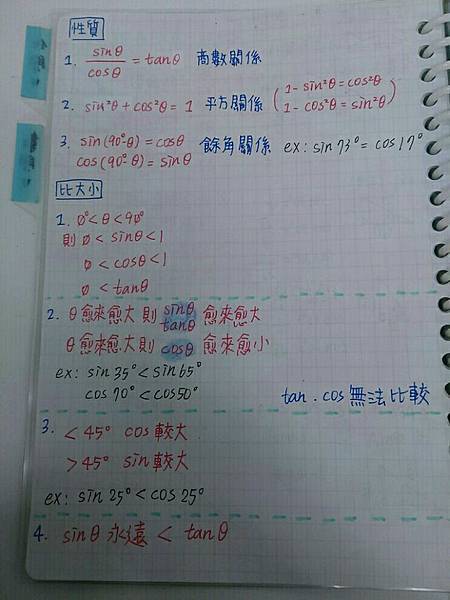 性質
1. sinθ/cosθ = tanθ 商數關係
2. sin²θ + cos²θ = 1 平方關係 (1 - sin²θ = cos²θ
1 - cos²θ = sin²θ)
3. sin(90°-θ) = cosθ 餘角關係 ex: sin73° = cos17°
cos(90°-θ) = sinθ
比大小
1. 0°<θ<90°
則 0 < sinθ < 1
0 < cosθ < 1
0 < tanθ
2. θ愈來愈大則 sinθ tanθ 愈來愈大
θ愈來愈大則 cosθ 愈來愈小
ex: sin35° < sin65°
cos70° < cos50°
tan . cos 無法比較
3. < 45° cos較大
> 45° sin較大
ex: sin25° < cos25°
4. sinθ 永遠 < tanθ